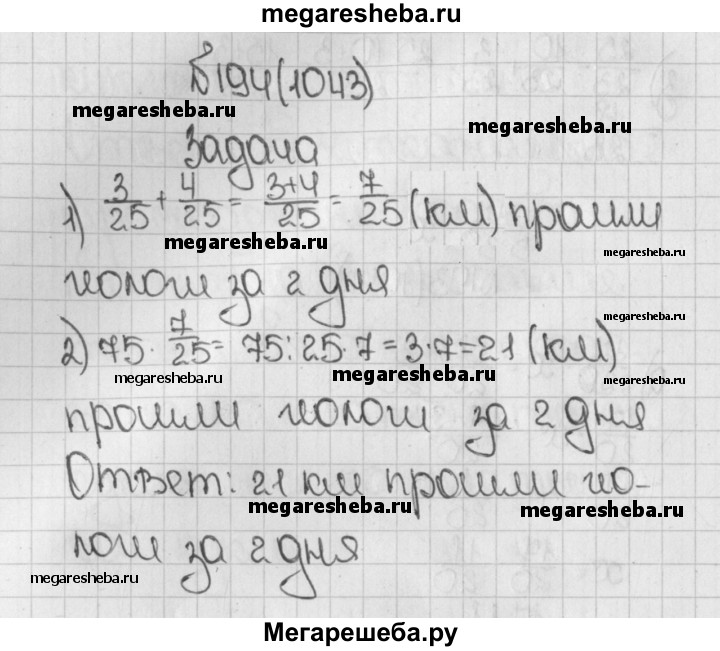 megaresheba.ru
№194(1043)
megaresheba.ru
megaresheba.ru
Задача
1) 3/25 + 4/25 = 3+4/25 = 7/25 (км) прошли
megaresheba.ru
megaresheba.ru
за 2 дня
megaresheba.ru
2) 75 · 7/25 = 75:25·7=3·7=21 (км)
megaresheba.ru
megaresheba.ru
megaresheba.ru
прошли за 2 дня
Ответ: 21 км прошли
megaresheba.ru
megaresheba.ru
за 2 дня
megaresheba.ru
Мегарешеба.ру